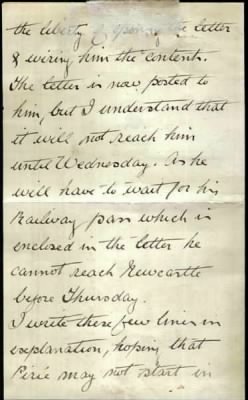 the liberty of opening the letter
& wiring him the contents.
The letter is now posted to
him, but I understand that
it will not reach him
until Wednesday. As he
will have to wait for his
Railway pass which is
enclosed in the letter he
cannot reach Newcastle
before Thursday.
I write these few lines in
explanation, hoping that
Pirie may not start in